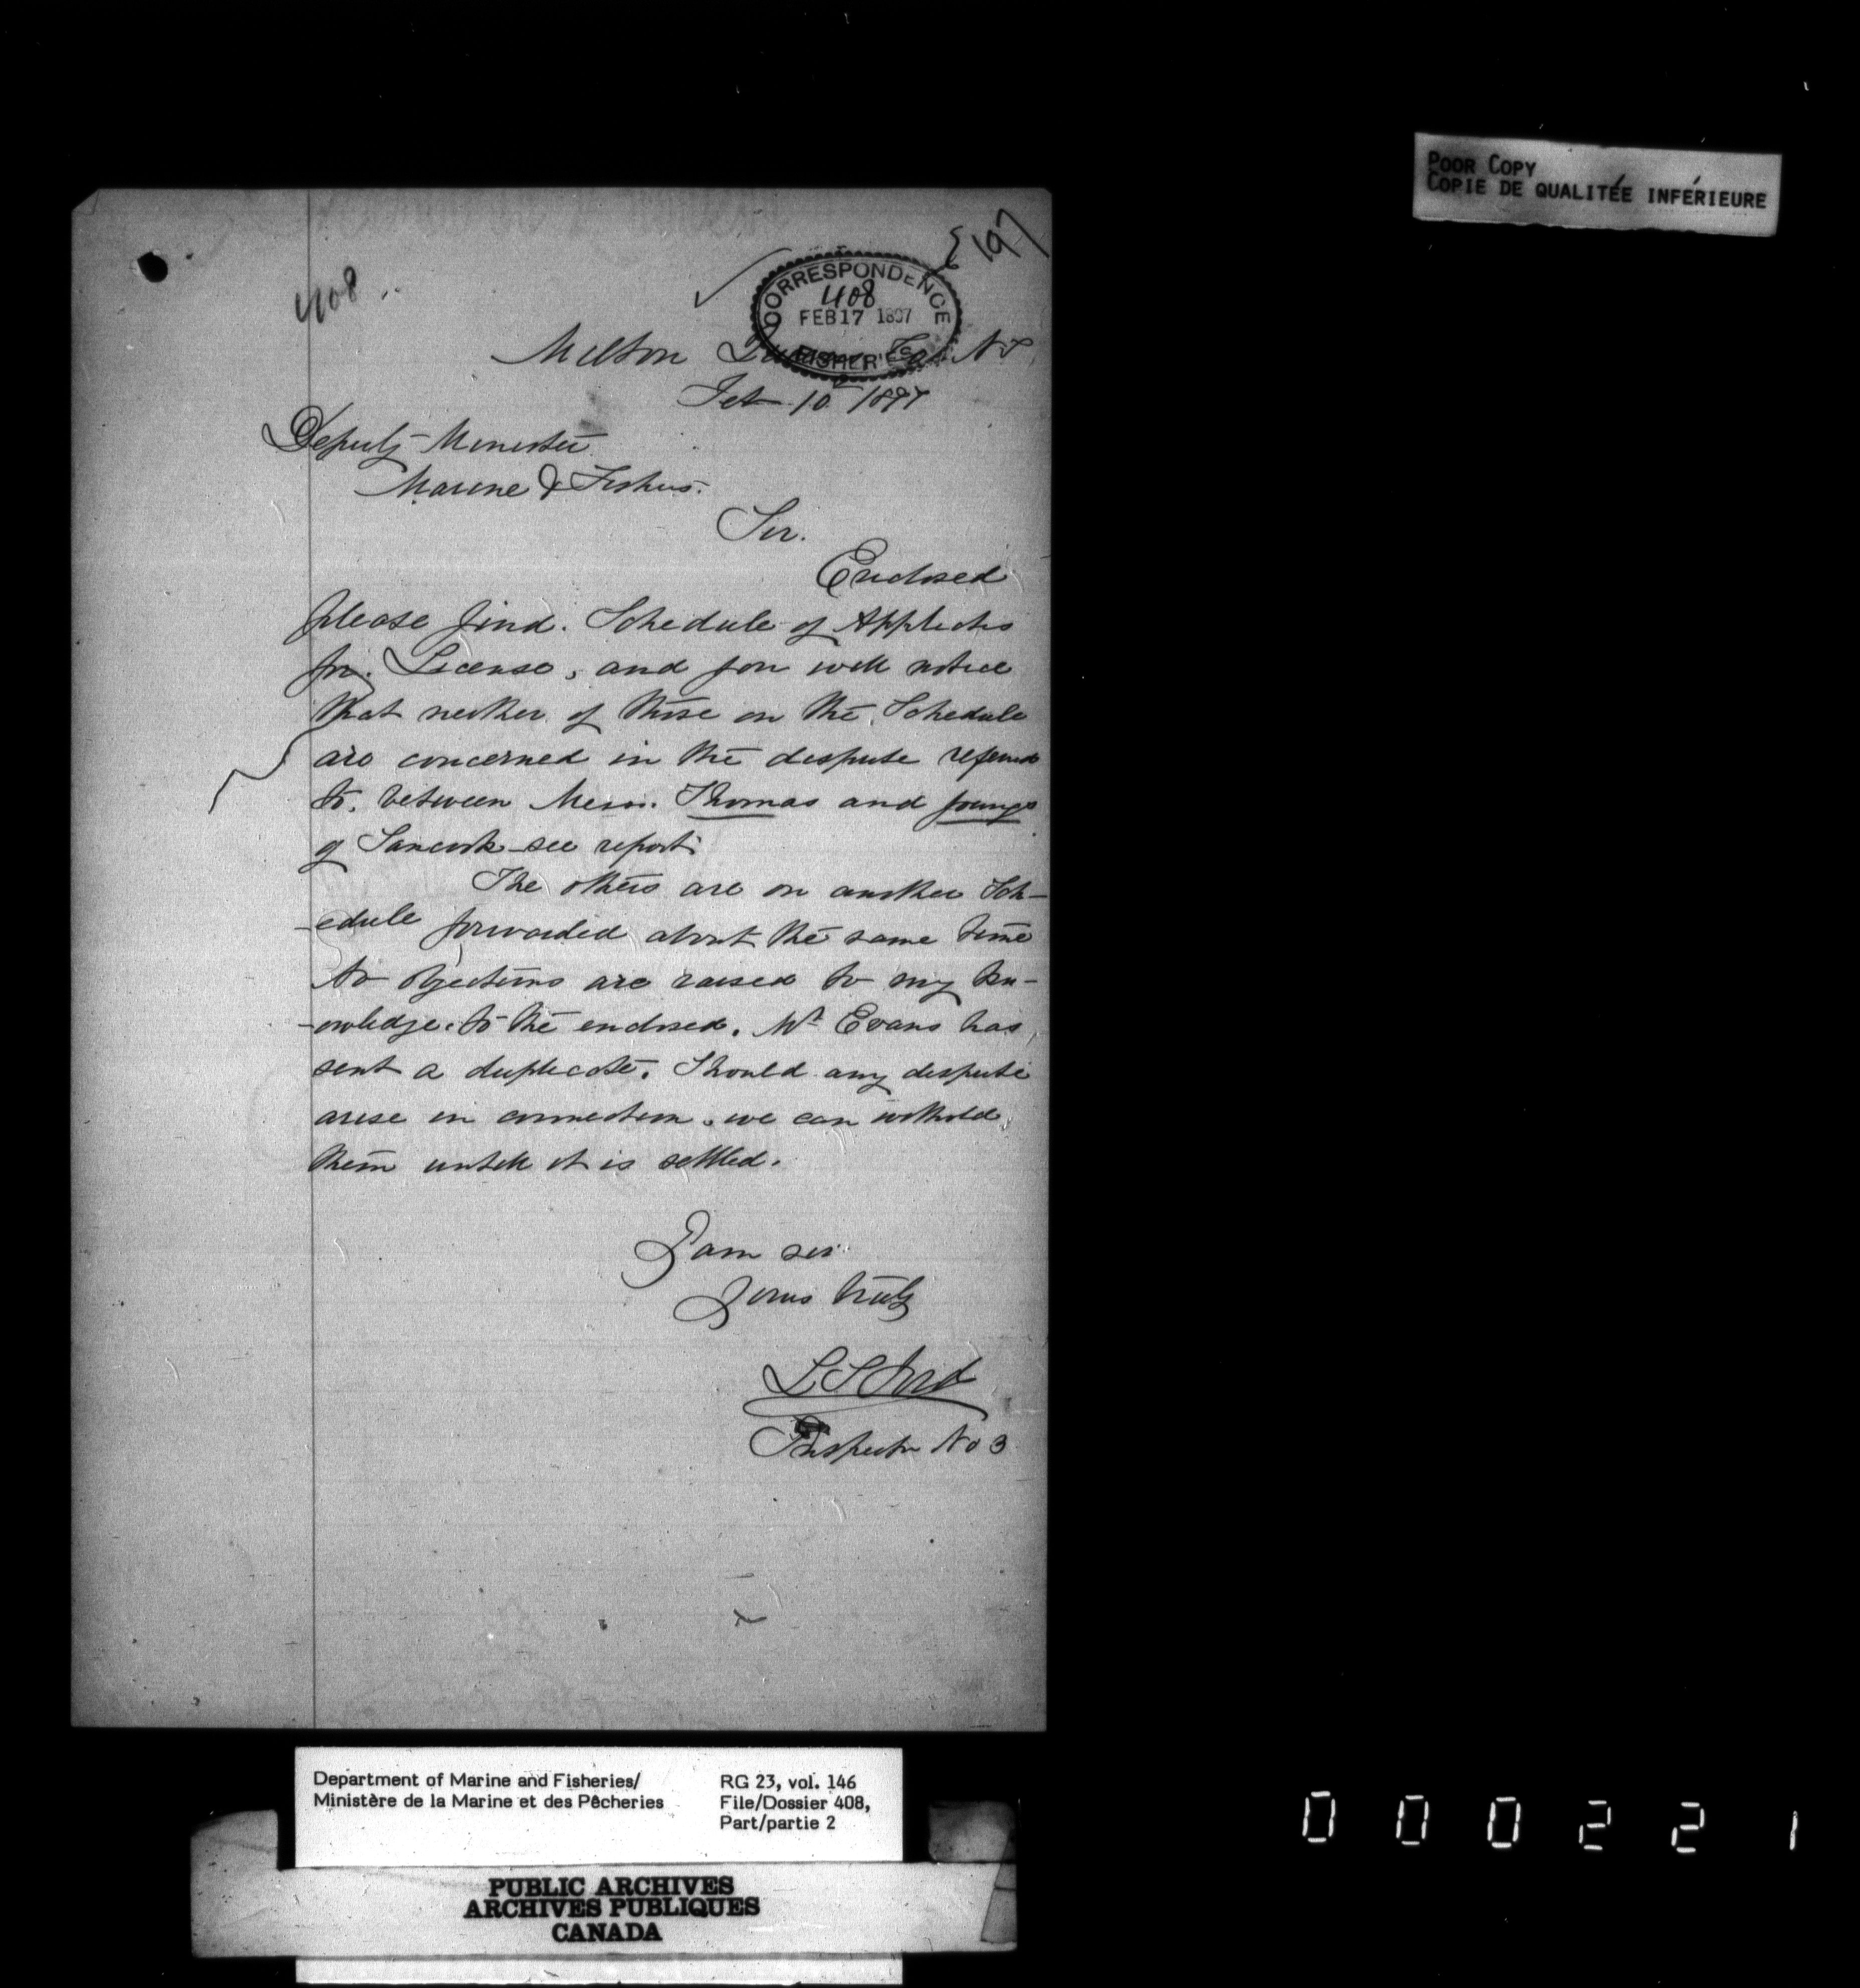 POOR COPY
COPIE DE QUALITÉE INFÉRIEURE
197
408
CORRESPONDENCE
408
FEB 17 1897
FISHERIES
Milton Queens Co. N.S.
Feb 10 1897
Deputy Minister
Marine & Fishers.
Sir.
Enclosed
please find. Schedule of Applicts
for. License, and you will notice
that neither of those on the Schedule
are concerned in the dispute referred
to, between Messrs. Thomas and Youngs
of Tancook see report
The others are on another Sch-
-edule forwarded about the same time
No objections are raised to my kn-
-owledge to the enclosed. Mr Evans has
sent a duplicate. Should any dispute
arise in connection, we can withold
them untill it is settled.
I am sir
Yours truly
L S Ford
Inspector No 3
Department of Marine and Fisheries/
Ministère de la Marine et des Pêcheries
RG 23, vol. 146
File/Dossier 408,
Part/partie 2
PUBLIC ARCHIVES
ARCHIVES PUBLIQUES
CANADA
000221